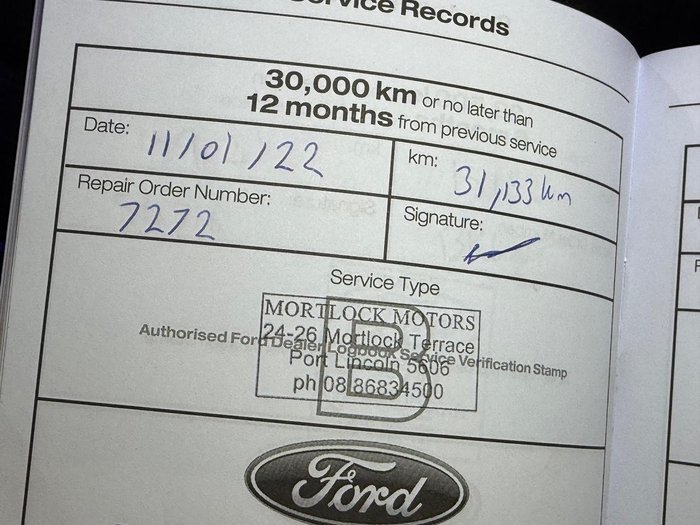 Service Records
30,000 km or no later than
12 months from previous service
Date: 11/01/22
km: 31,133 km
Repair Order Number:
7272
Signature:
Service Type
B
MORTLOCK MOTORS
24-26 Mortlock Terrace
Authorised Ford Dealer Logbook Service Verification Stamp
Port Lincoln 5606
ph 08 86834500
Ford